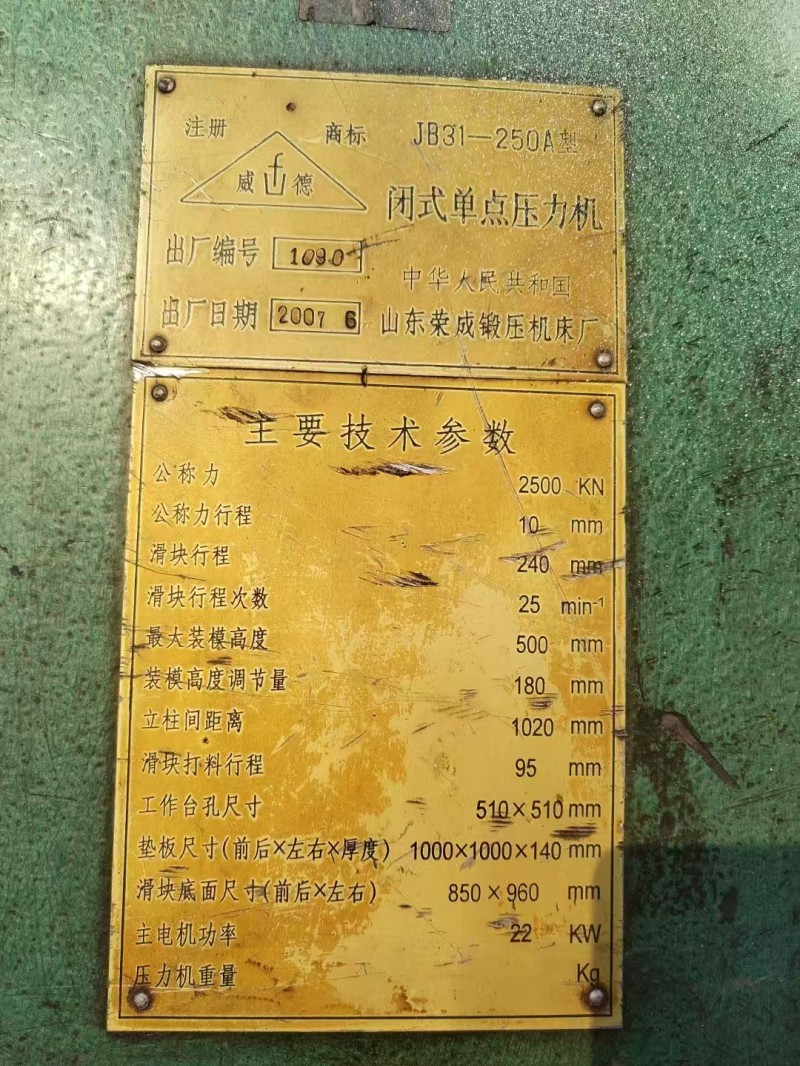 注册 商标 JB31-250A型
威 德
闭式单点压力机
出厂编号 1090
中华人民共和国
出厂日期 2007 6 山东荣成锻压机床厂
主要技术参数
公称力 2500 KN
公称力行程 10 mm
滑块行程 240 mm
滑块行程次数 25 min⁻¹
最大装模高度 500 mm
装模高度调节量 180 mm
立柱间距离 1020 mm
滑块打料行程 95 mm
工作台孔尺寸 510×510 mm
垫板尺寸(前后×左右×厚度) 1000×1000×140 mm
滑块底面尺寸(前后×左右) 850×960 mm
主电机功率 22 KW
压力机重量 Kg